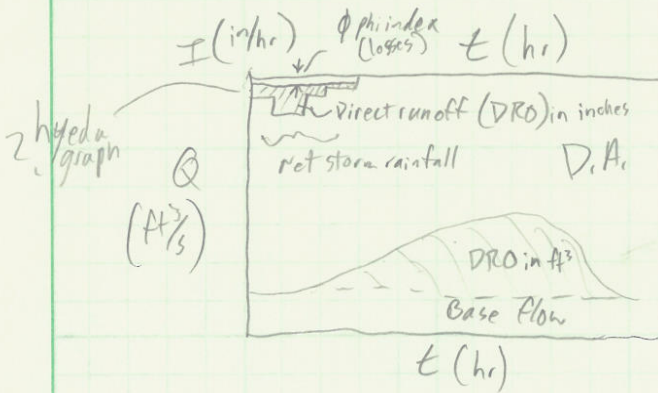 I (in/hr)
φ phi index
(losses)
t (hr)
Direct runoff (DRO) in inches
net storm rainfall
D.A.
graph
Q
(ft³/s)
DRO in ft³
Base flow
t (hr)